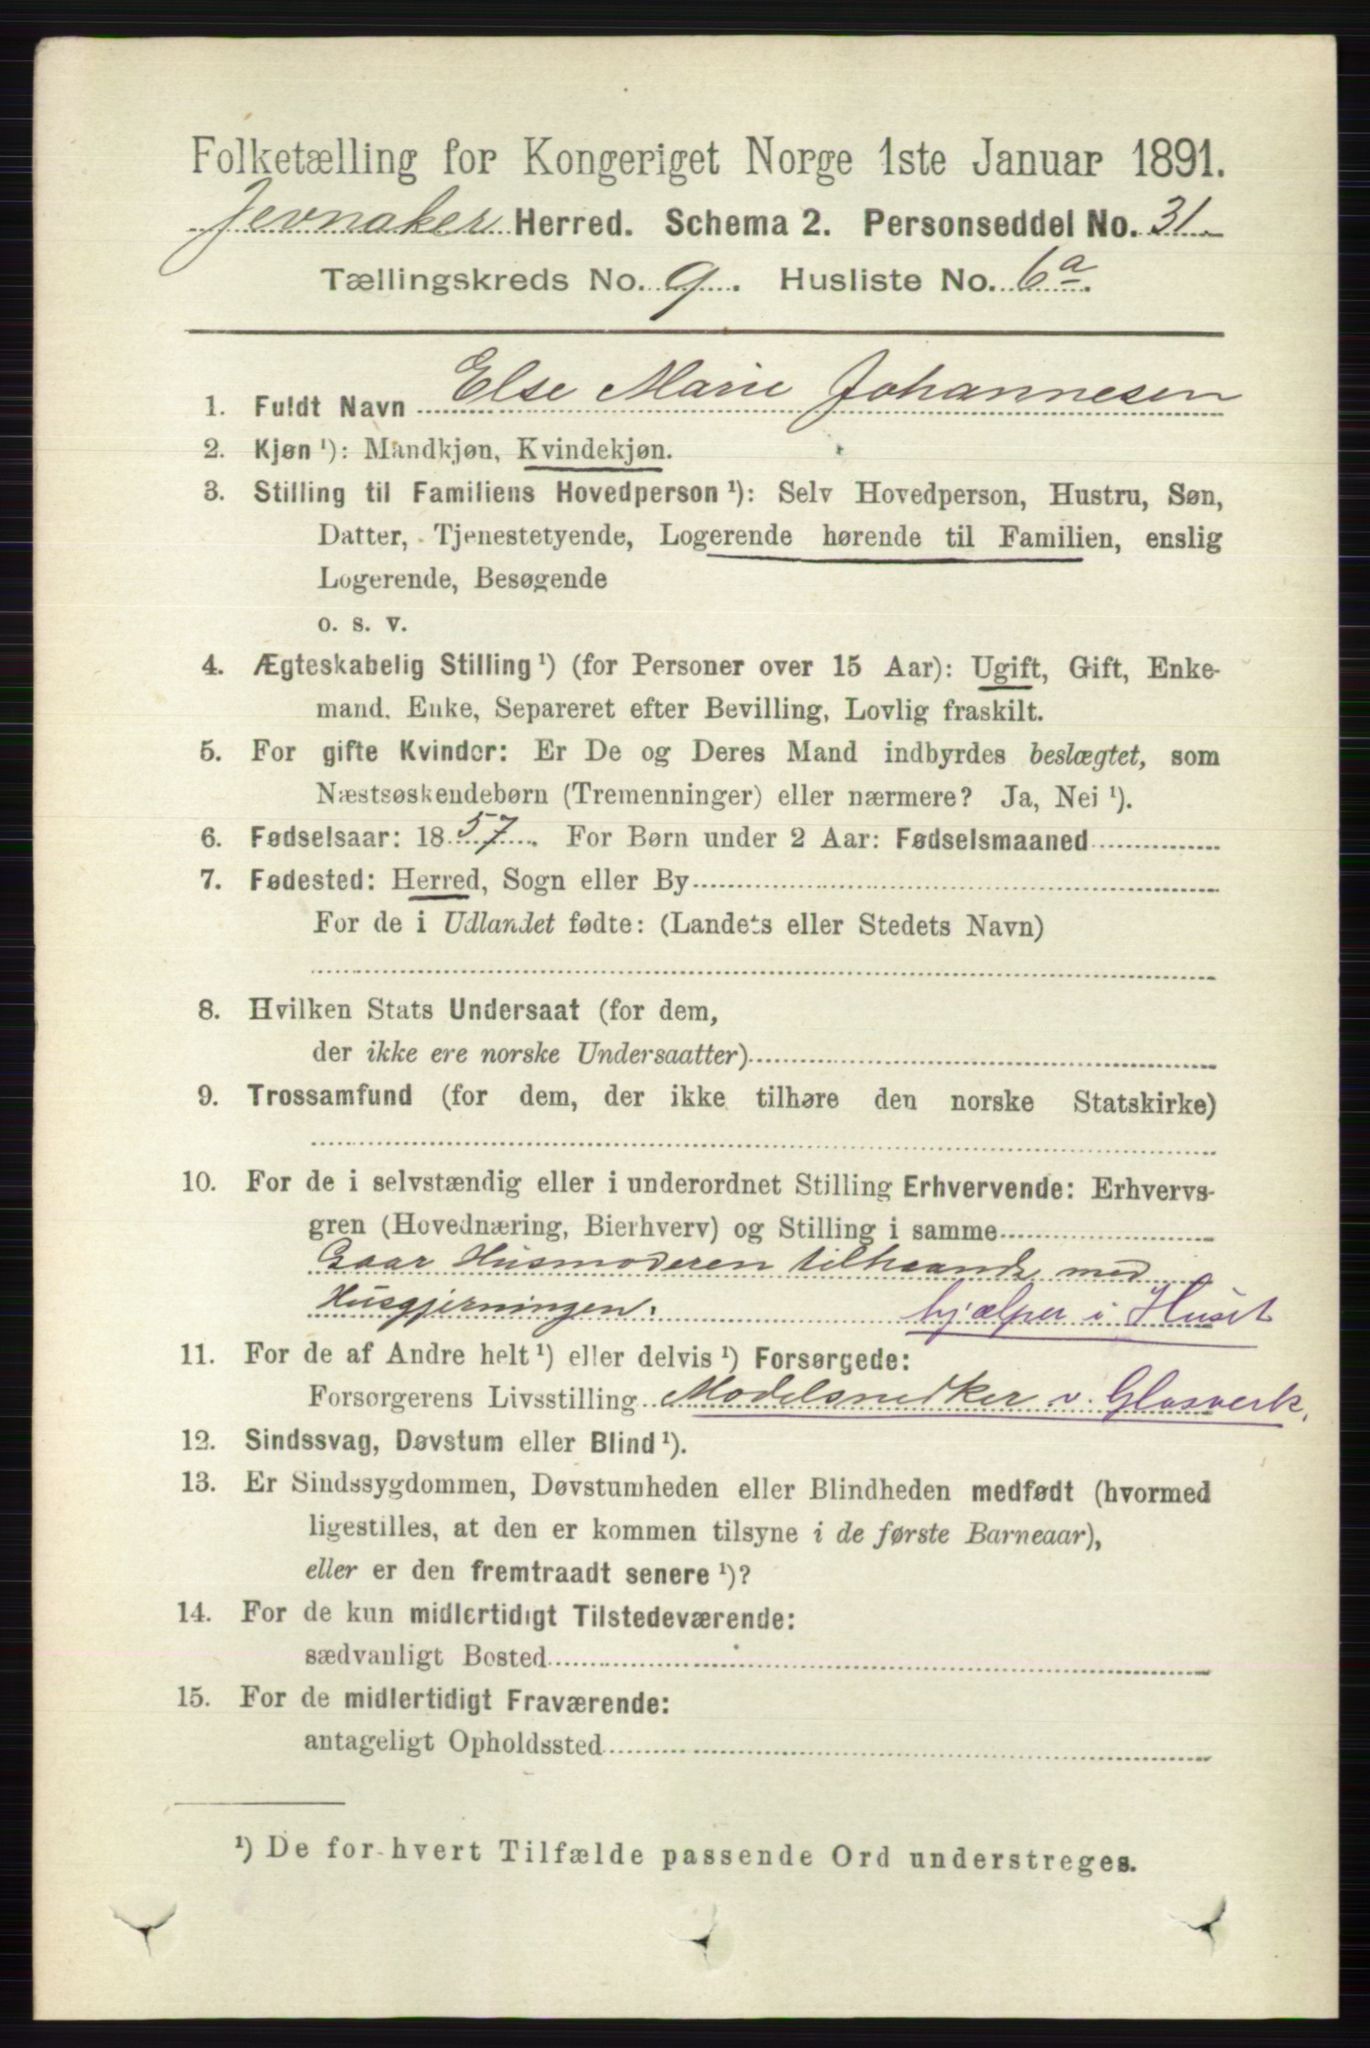 Folketælling for Kongeriget Norge 1ste Januar 1891.
Jevnaker Herred. Schema 2. Personseddel No. 31.
Tællingskreds No. 9. Husliste No. 6a.
1. Fuldt Navn Else Marie Johannesen
2. Kjøn ¹): Mandkjøn, Kvindekjøn.
3. Stilling til Familiens Hovedperson ¹): Selv Hovedperson, Hustru, Søn,
Datter, Tjenestetyende, Logerende hørende til Familien, enslig
Logerende, Besøgende
o. s. v.
4. Ægteskabelig Stilling ¹) (for Personer over 15 Aar): Ugift, Gift, Enke-
mand, Enke, Separeret efter Bevilling, Lovlig fraskilt.
5. For gifte Kvinder: Er De og Deres Mand indbyrdes beslægtet, som
Næstsøskendebørn (Tremenninger) eller nærmere? Ja, Nei ¹).
6. Fødselsaar: 1857. For Børn under 2 Aar: Fødselsmaaned
7. Fødested: Herred, Sogn eller By
For de i Udlandet fødte: (Landets eller Stedets Navn)
8. Hvilken Stats Undersaat (for dem,
der ikke ere norske Undersaatter)
9. Trossamfund (for dem, der ikke tilhøre den norske Statskirke)
10. For de i selvstændig eller i underordnet Stilling Erhvervende: Erhvervs-
gren (Hovednæring, Bierhverv) og Stilling i samme
Gaar Husmoderen tilhaande med
Husgjerningen. hjælper i Huset
11. For de af Andre helt ¹) eller delvis ¹) Forsørgede:
Forsørgerens Livsstilling Modelsnedker v. Glasverk.
12. Sindssvag, Døvstum eller Blind ¹).
13. Er Sindssygdommen, Døvstumheden eller Blindheden medfødt (hvormed
ligestilles, at den er kommen tilsyne i de første Barneaar),
eller er den fremtraadt senere ¹)?
14. For de kun midlertidigt Tilstedeværende:
sædvanligt Bosted
15. For de midlertidigt Fraværende:
antageligt Opholdssted
¹) De for hvert Tilfælde passende Ord understreges.